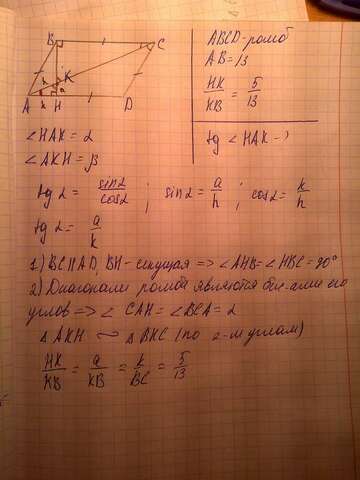 B
C
K
h
a
A
k
H
D
ABCD-ромб
AB=13
HK/KB = 5/13
tg ∠HAK - ?
∠HAK = α
∠AKH = β
tg α = sinα/cosα ; sinα = a/h ; cosα = k/h
tg α = a/k
1) BC||AD, BH - секущая => ∠AHB = ∠HBC = 90°
2) Диагонали ромба являются бис-ами его
углов => ∠CAH = ∠BCA = α
△AKH ∾ △BKC (по 2-м углам)
HK/KB = a/KB = k/BC = 5/13